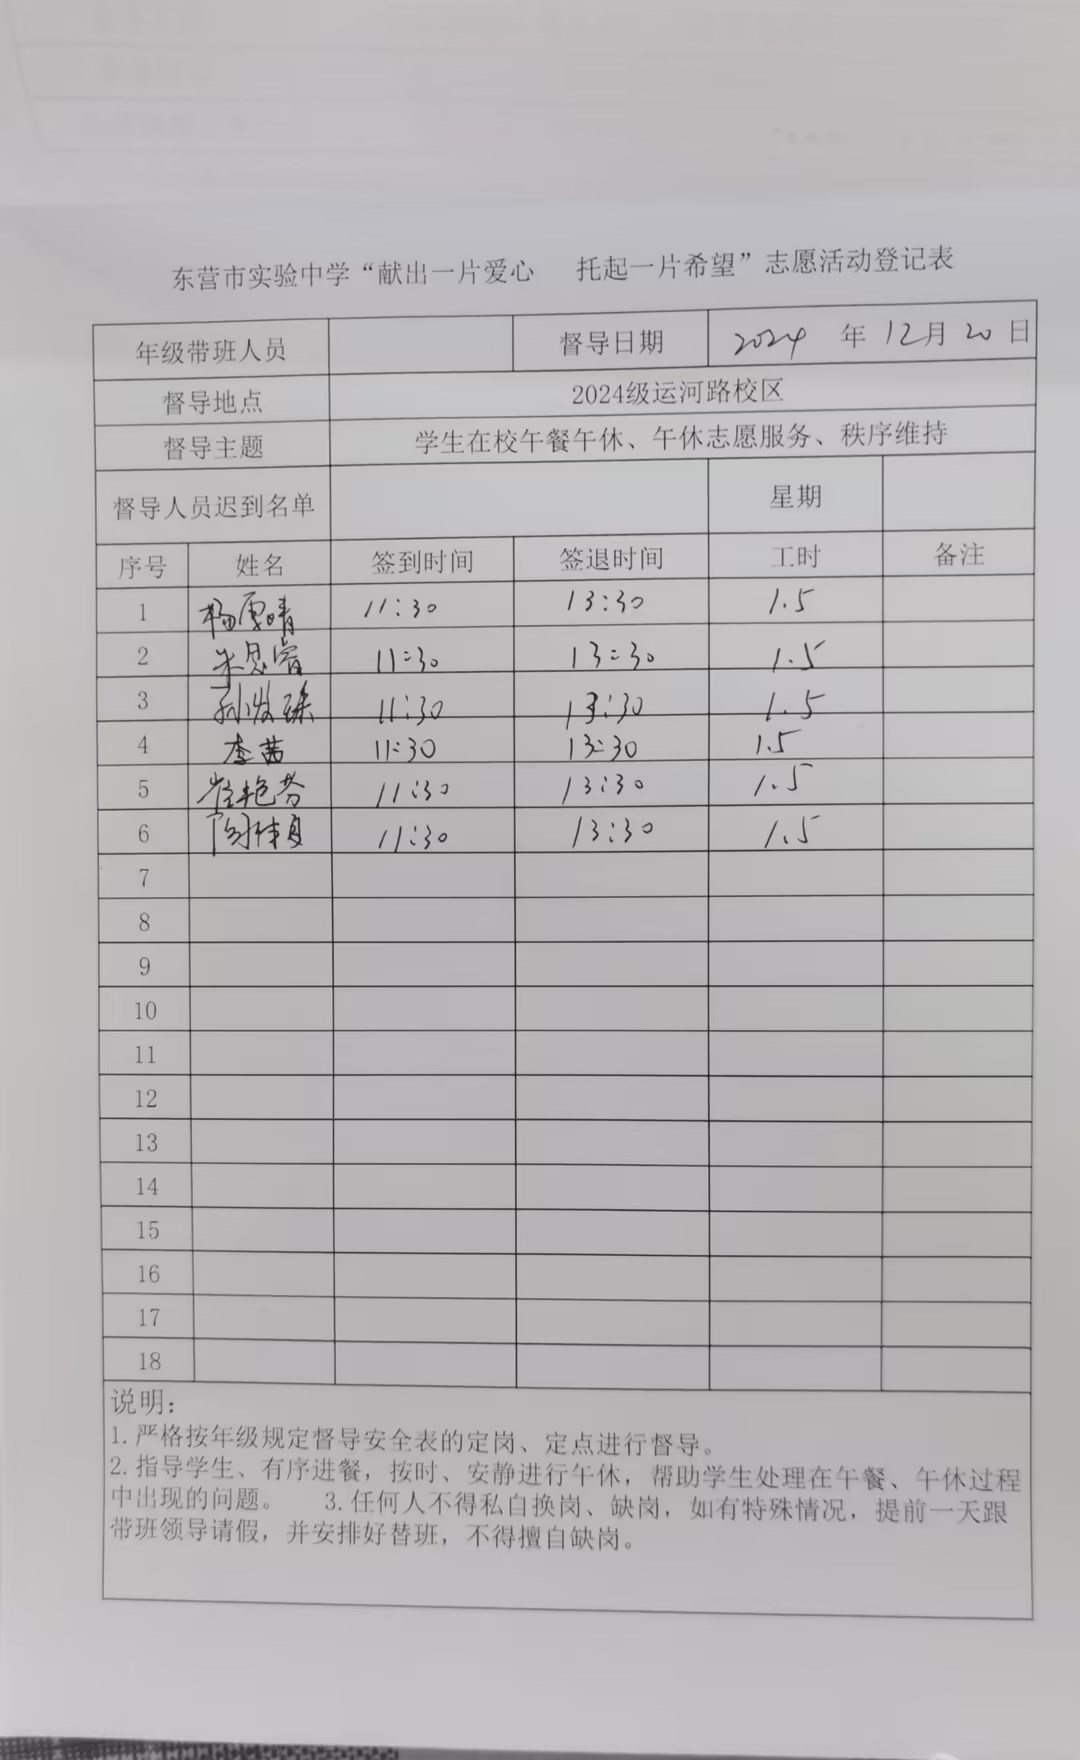 东营市实验中学“献出一片爱心 托起一片希望”志愿活动登记表
年级带班人员 督导日期 2024 年 12月 20 日
督导地点 2024级运河路校区
督导主题 学生在校午餐午休、午休志愿服务、秩序维持
督导人员迟到名单 星期
序号 姓名 签到时间 签退时间 工时 备注
1 杨厚晴 11:30 13:30 1.5
2 朱思睿 11:30 13:30 1.5
3 11:30 13:30 1.5
4 李茜 11:30 13:30 1.5
5 崔艳芬 11:30 13:30 1.5
6 11:30 13:30 1.5
7
8
9
10
11
12
13
14
15
16
17
18
说明：
1.严格按年级规定督导安全表的定岗、定点进行督导。
2.指导学生、有序进餐，按时、安静进行午休，帮助学生处理在午餐、午休过程
中出现的问题。 3.任何人不得私自换岗、缺岗，如有特殊情况，提前一天跟
带班领导请假，并安排好替班，不得擅自缺岗。